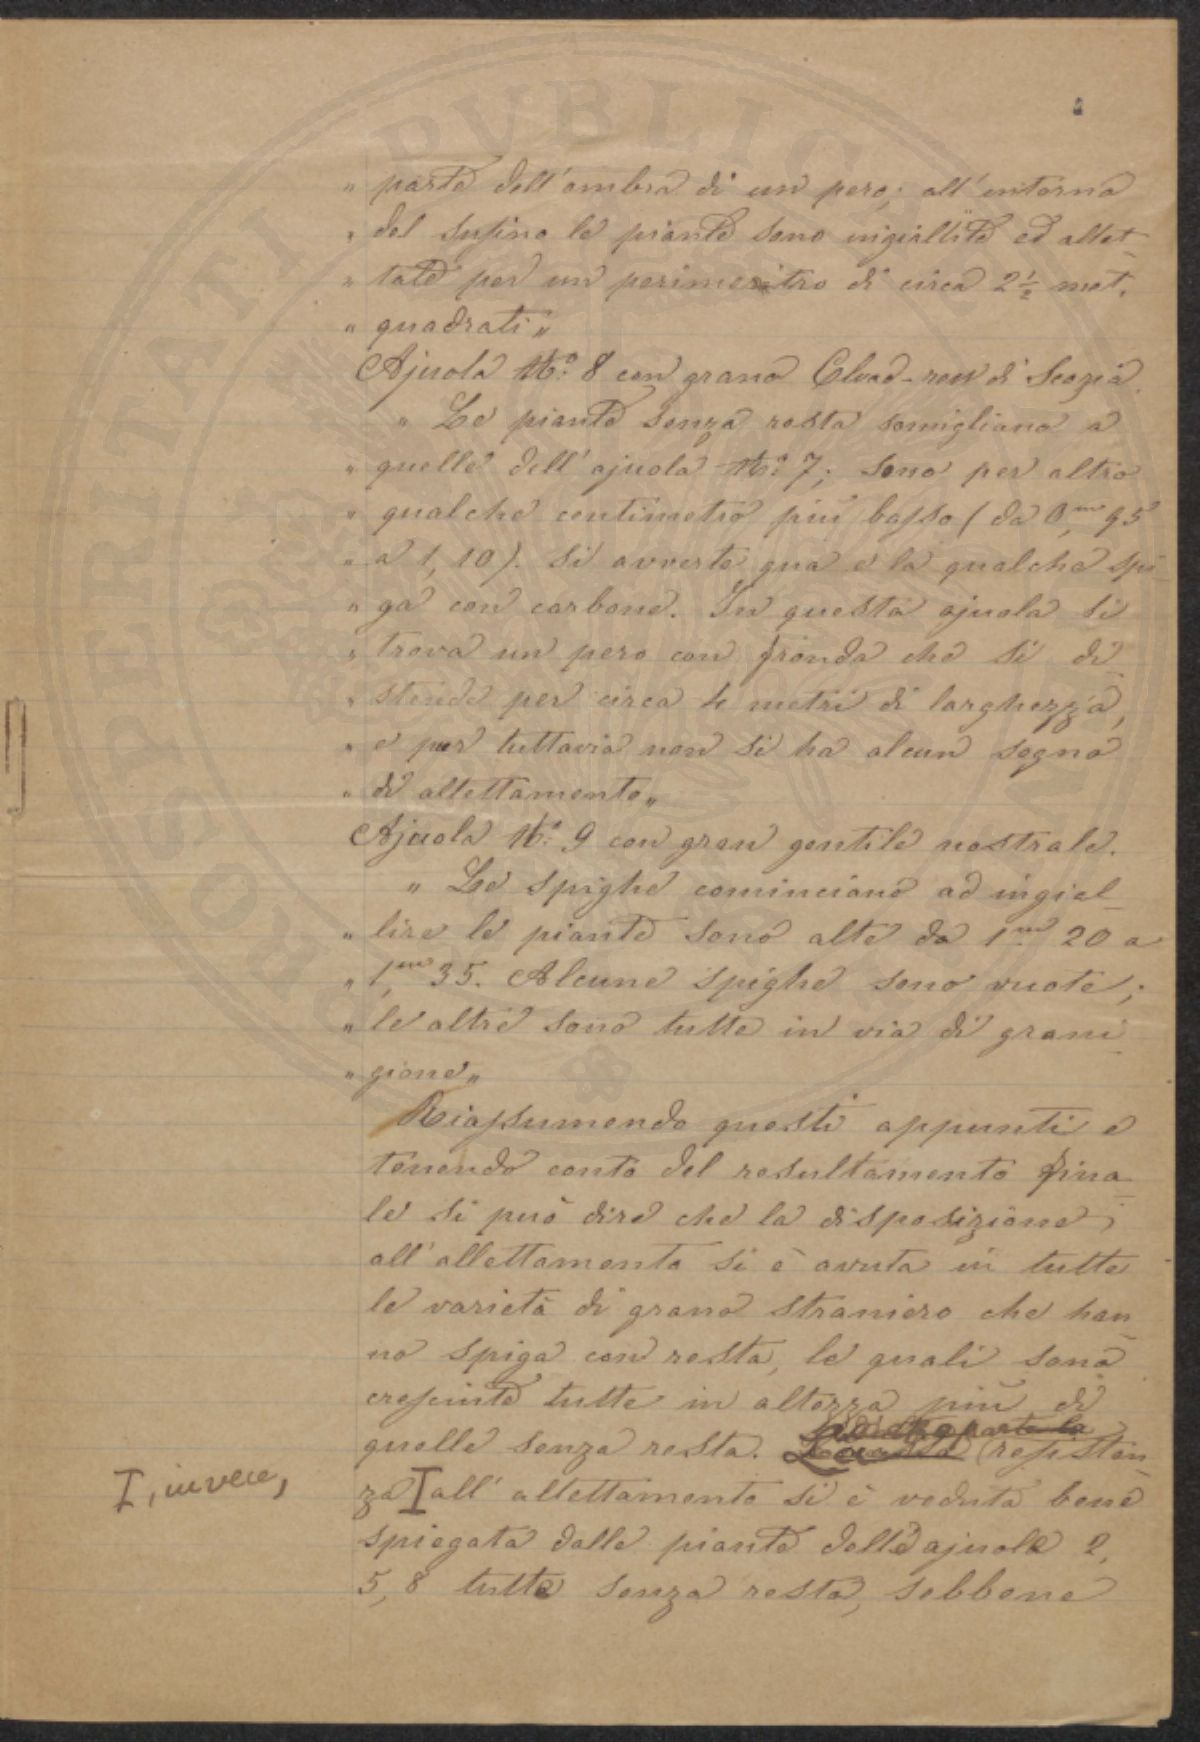 „ parte dell'ombra di un pero; all'intorno
„ del susino le piante sono ingiallite ed allet-
„ tate per un perimetro di circa 2 ½ met.
„ quadrati„
Ajuola No. 8 con grano di Scozia.
„ Le piante senza resta somigliano a
„ quelle dell'ajuola No. 7; sono per altro
„ qualche centimetro più basso (da 0,m 95
„ a 1, 10). Si avverte qua e là qualche spi-
„ ga con carbone. In questa ajuola si
„ trova un pero con fronda che si di-
„ stende per circa 4 metri di larghezza,
„ e pur tuttavia non si ha alcun segno
„ di allettamento„
Ajuola No. 9 con gran gentile nostrale.
„ Le spighe cominciano ad ingial-
„ lire le piante sono alte da 1m 20 a
„ 1,m 35. Alcune spighe sono vuote;
„ le altre sono tutte in via di grani-
„ gione„
Riassumendo questi appunti e
tenendo conto del resultamento fina-
le si può dire che la disposizione
all'allettamento si è avuta in tutte
le varietà di grano straniero che han-
no spiga con resta, le quali sono
cresciute tutte in altezza più di
quelle senza resta. La resisten-
za I all'allettamento si è veduta bene
I, invece,
spiegata dalle piante delle ajuole 2,
5, 8 tutte senza resta, sebbene
PROSPERITATI PUBLICAE